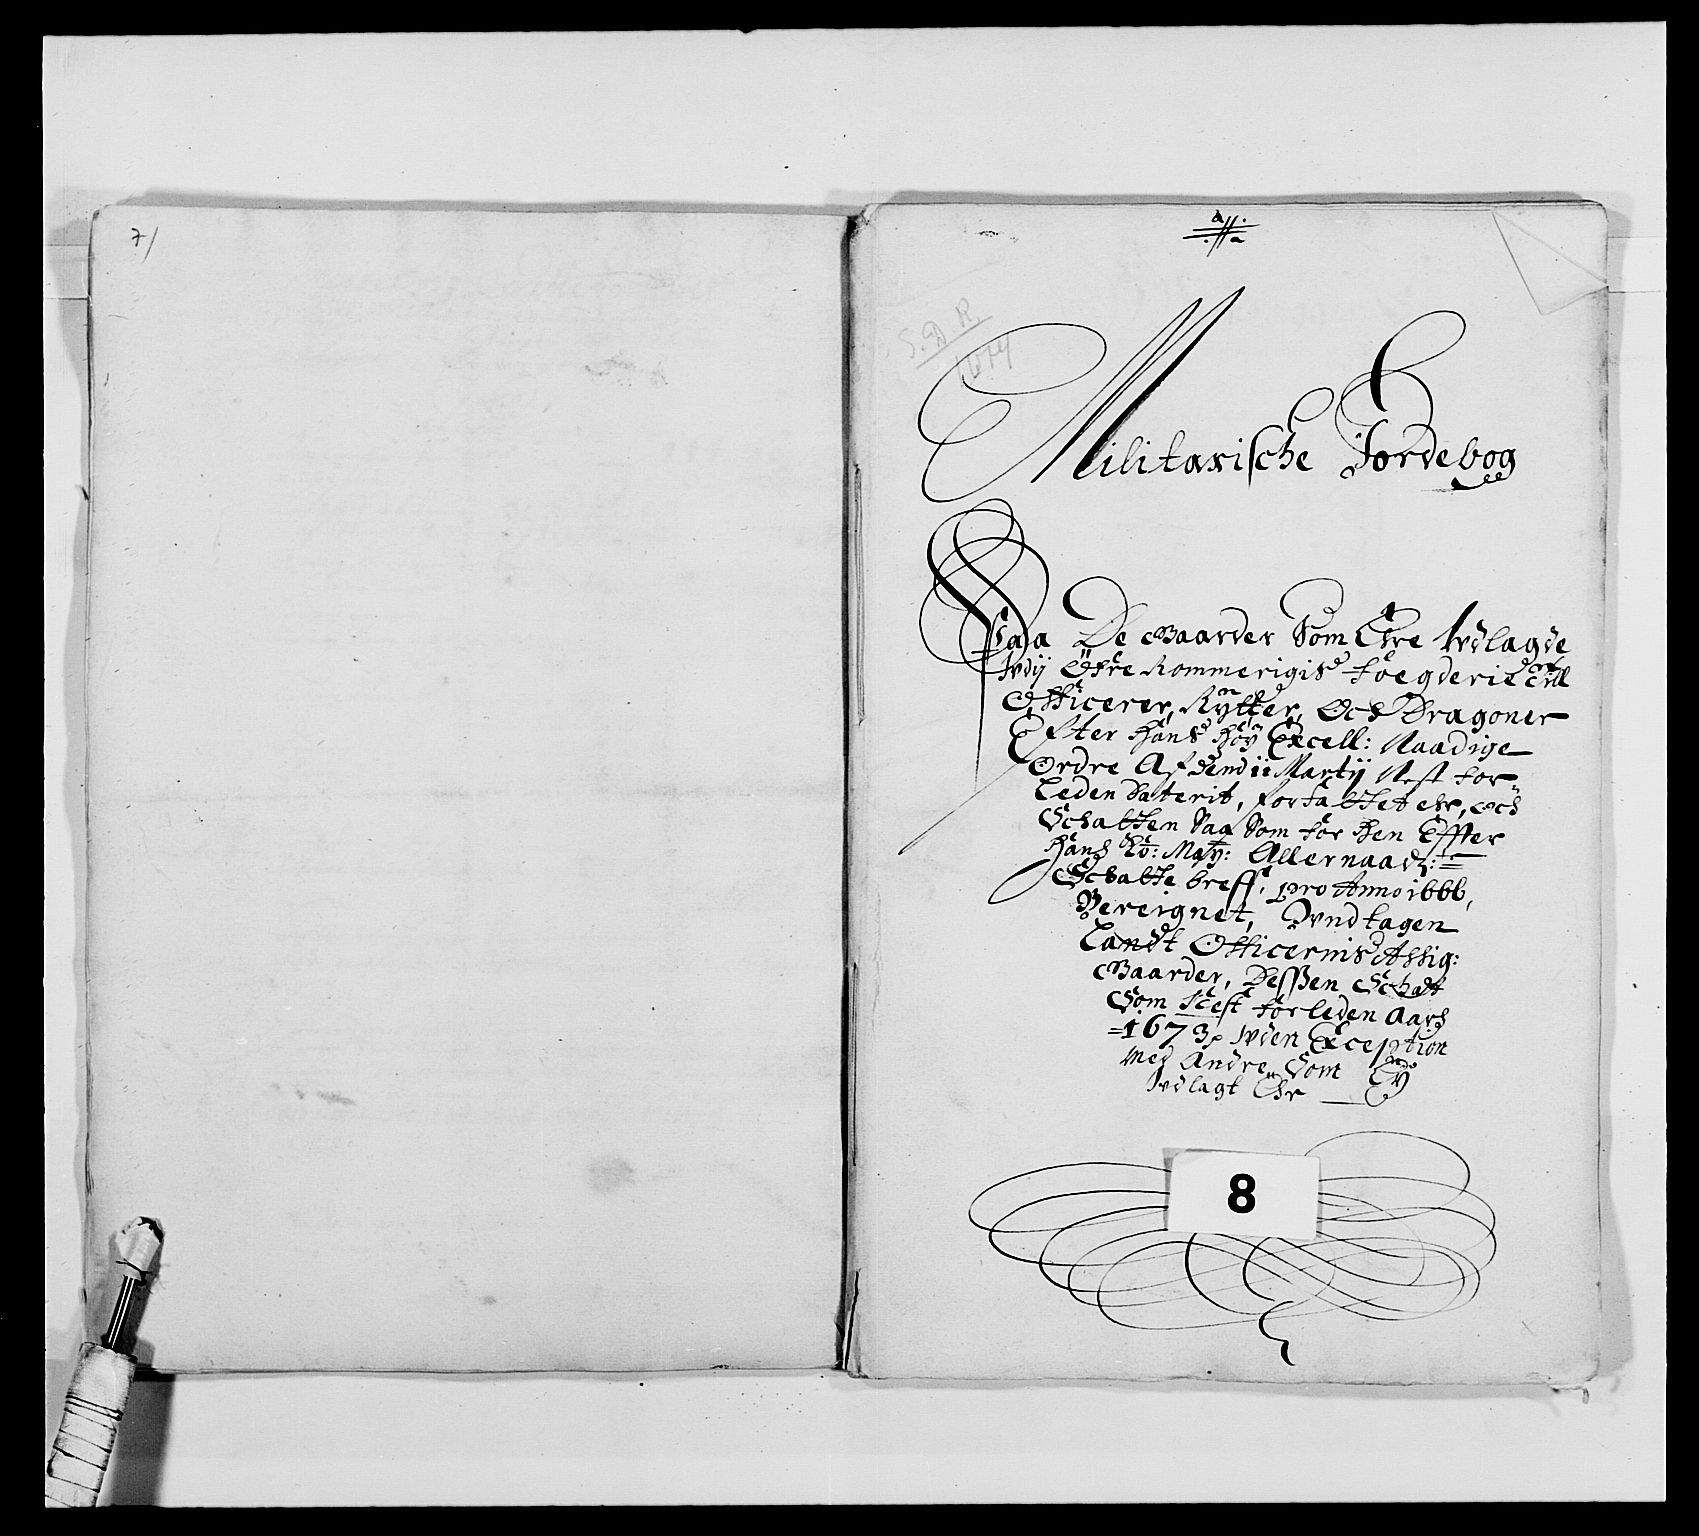 7/
a //. a
S. D. R.
1674
Militarische Jordebog
Paa De Gaarder Som Ehre Udlagde
Udij Öfre Rommerigis Foegderie till
Officerer, Rÿtter, Och Dragoner
Efter Hans Höÿ Excell: Naadige
Ordre Af Dend ii Martij Nest for-
leden Daterit, forfattet ehr, och
Schatten Saa Som för hen Effter
Hans Ko: Maÿ: Allernaadz:
Schatte breff, pro Anno 1666,
Bereignet, Undtagen
Landt Officernis Assig:
Gaarder, Dessen Schatt
Som Næst forleden Aars
1673, uden Exception
Med Andre Som Eÿ
Udlagt Ehr
8